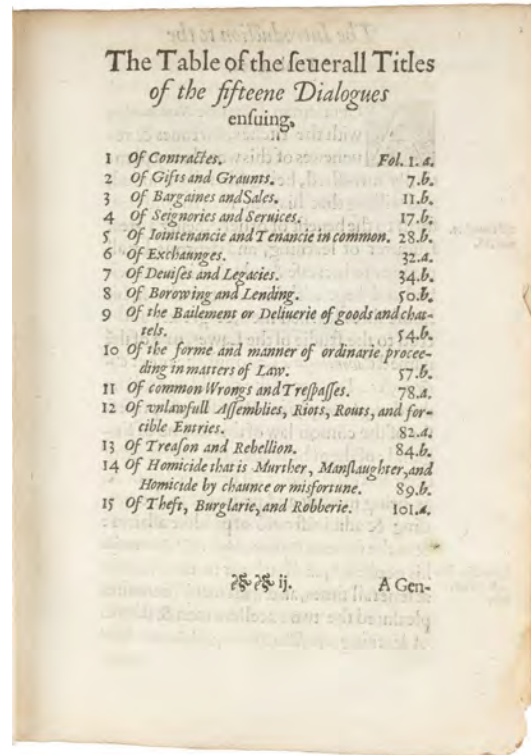 The Table of the ſeuerall Titles
of the fifteene Dialogues
enſuing,
1 Of Contractes. Fol. 1. a.
2 Of Gifts and Graunts. 7.b.
3 Of Bargaines and Sales. 11.b.
4 Of Seignories and Seruices. 17.b.
5 Of Iointenancie and Tenancie in common. 28.b.
6 Of Exchaunges. 32.a.
7 Of Deuiſes and Legacies. 34.b.
8 Of Borowing and Lending. 50.b.
9 Of the Bailement or Deliuerie of goods and chat-
tels. 54.b.
10 Of the forme and manner of ordinarie procee-
ding in matters of Law. 57.b.
11 Of common Wrongs and Treſpaſſes. 78.a.
12 Of vnlawfull Aſſemblies, Riots, Routs, and for-
cible Entries. 82.a.
13 Of Treaſon and Rebellion. 84.b.
14 Of Homicide that is Murther, Manſlaughter, and
Homicide by chaunce or misfortune. 89.b.
15 Of Theft, Burglarie, and Robberie. 101.a.
ij. A Gen-